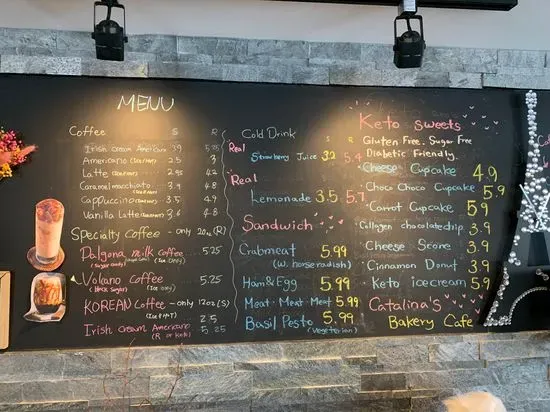 MENU
Coffee S R
Irish cream Americano 3.9 5.25
Americano (Ice/HOT) 2.5 3
Latte (Ice/HOT) 3.95 4.2
Caramel macchiato 3.9 4.8
Cappuccino (Ice/HOT) 3.5 4.9
Vanilla Latte (Ice/HOT) 3.9 4.8
Specialty Coffee - only 20oz (R)
Dalgona milk coffee 5.25
(Sugar candy) (Ice ONLY)
Volcano Coffee 5.25
(Black Sugar) (Ice ONLY)
KOREAN Coffee - only 12oz (S)
(Ice/HOT) 2.5
Irish Cream Americano 5.25
(R or Keto)
Cold Drink S R
Real
Strawberry Juice 3.2 5.4
Real
Lemonade 3.5 5.7
Sandwich
Crabmeat 5.99
(W. horseradish)
Ham & Egg 5.99
Meat·Meat·Meat 5.99
Basil Pesto 5.99
(Vegeterian)
Keto sweets
Gluten Free. Sugar Free
Diabetic Friendly.
Cheese Cupcake 4.9
Choco Choco Cupcake 5.9
Carrot Cupcake 5.9
Collagen chocolate chip 3.9
Cheese Scone 3.9
Cinnamon Donut 3.9
Keto icecream 5.9
Catalina's
Bakery Cafe